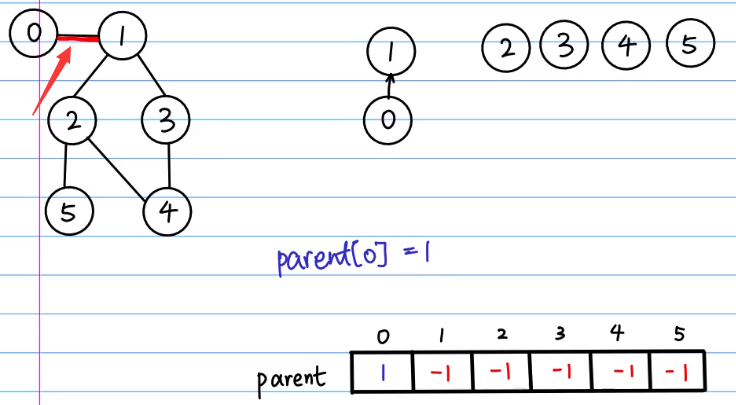 0 1 1 2 3 4 5
2 3 0
5 4
parent[0] = 1
0 1 2 3 4 5
parent 1 -1 -1 -1 -1 -1